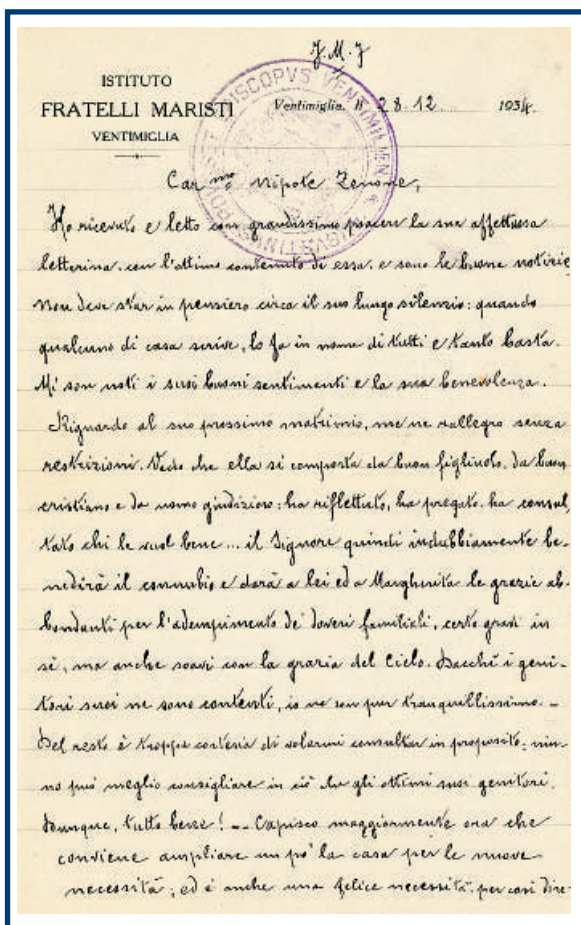 J. M. J
ISTITUTO
FRATELLI MARISTI
VENTIMIGLIA
Ventimiglia, li 28.12. 1934.
EPISCOPVS VENTIMILIEN
Car.mo nipote Zenone,
Ho ricevuto e letto con grandissimo piacere la sua affettuosa
letterina, con l'ottimo contenuto di essa, e sono le buone notizie
Non deve star in pensiero circa il suo lungo silenzio: quando
qualcuno di casa scrive, lo fa in nome di tutti e tanto basta.
Mi son noti i suoi buoni sentimenti e la sua benevolenza.
Riguardo al suo prossimo matrimonio, me ne rallegro senza
restrizioni. Vedo che ella si comporta da buon figliuolo, da buon
cristiano e da uomo giudizioso: ha riflettuto, ha pregato, ha consul
tato chi le vuol bene ... il Signore quindi indubbiamente be-
nedirà il connubio e darà a lei ed a Margherita le grazie ab-
bondanti per l'adempimento de' doveri familiali, certo gravi in
sè, ma anche soavi con la grazia del Cielo. Dacchè i geni-
tori suoi ne sono contenti, io ne son pur tranquillissimo. -
Del resto è troppa cortesia di volermi consultar in proposito: nin-
no può meglio consigliare in ciò che gli ottimi suoi genitori.
Dunque, tutto bene! - Capisco maggiormente ora che
conviene ampliare un pò la casa per le nuove
necessità; ed è anche una felice necessità, per così dire